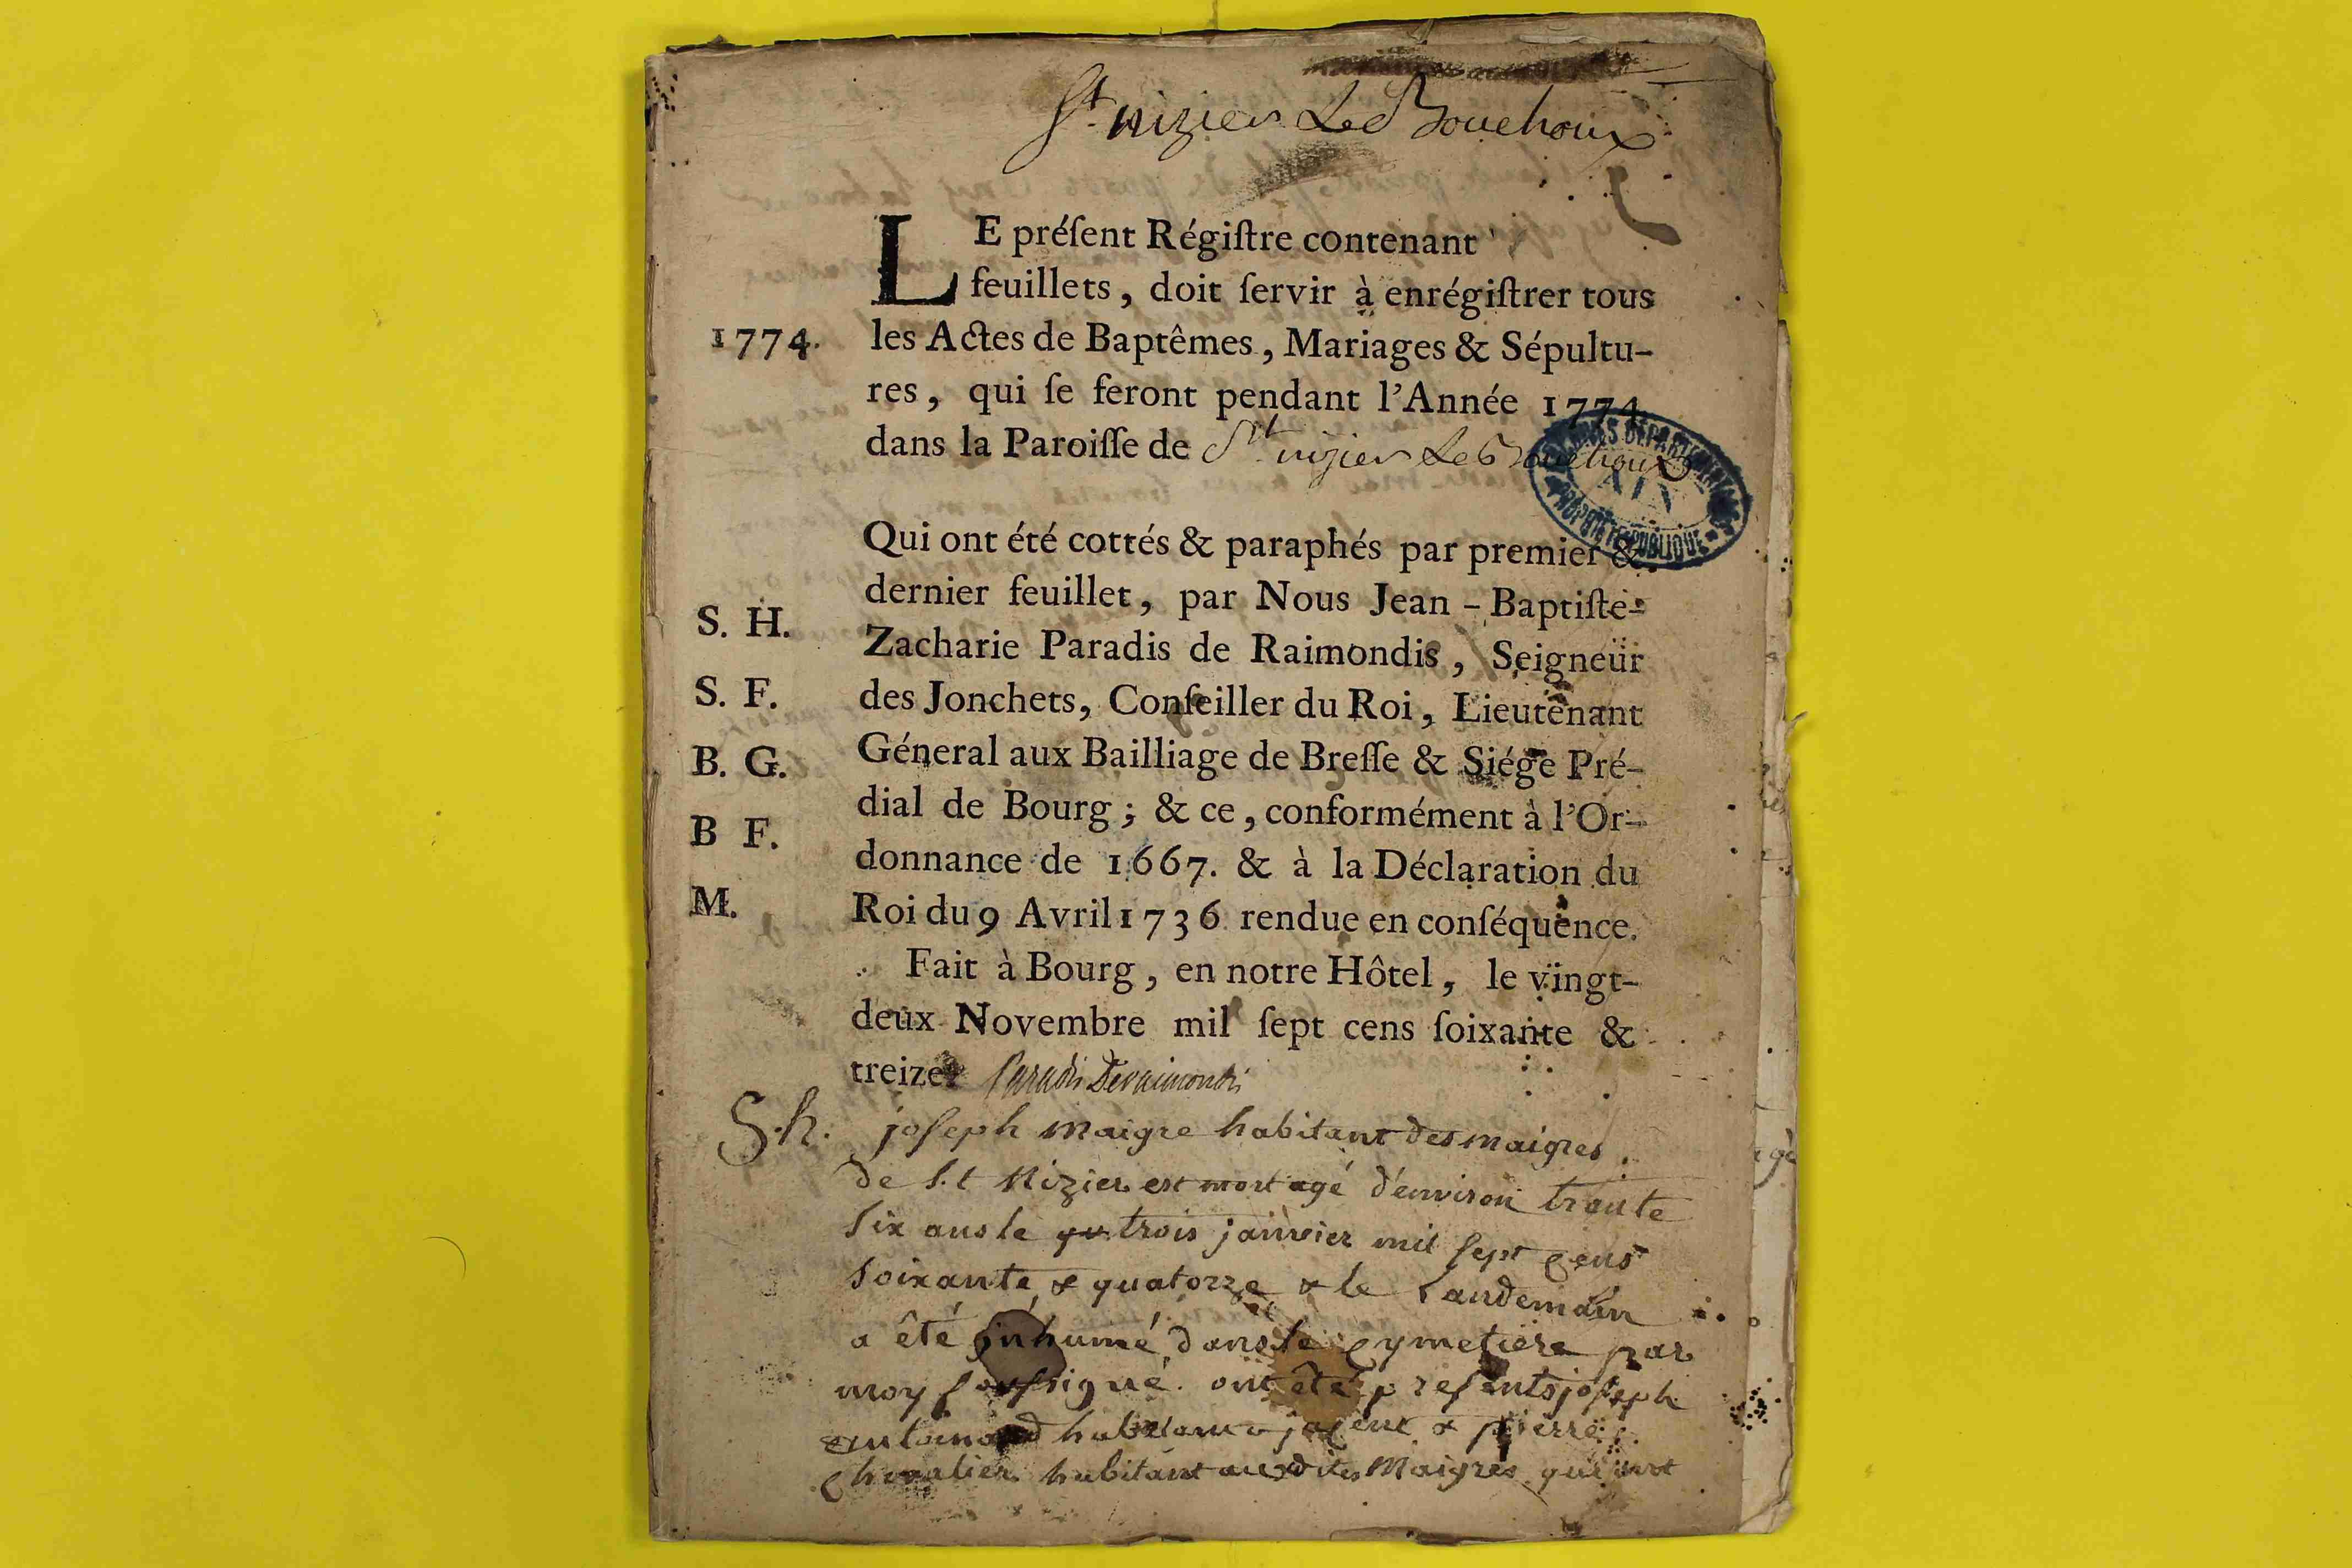 St. nizier Le Bouchoux
LE préſent Régiſtre contenant
feuillets, doit ſervir à enrégiſtrer tous
1774. les Actes de Baptêmes, Mariages & Sépultu-
res, qui ſe feront pendant l'Année 1774.
dans la Paroiſſe de St nizier Le Bouchoux
ARCHIVES DÉPARTEMENTALES
AIN
PROPRIÉTÉ PUBLIQUE
Qui ont été cottés & paraphés par premier &
dernier feuillet, par Nous Jean-Baptiſte-
S. H. Zacharie Paradis de Raimondis, Seigneur
S. F. des Jonchets, Conſeiller du Roi, Lieutenant
B. G. Géneral aux Bailliage de Breſſe & Siége Pré-
B F. dial de Bourg; & ce, conformément à l'Or-
donnance de 1667. & à la Déclaration du
M. Roi du 9 Avril 1736 rendue en conſéquence.
Fait à Bourg, en notre Hôtel, le vingt-
deux Novembre mil ſept cens ſoixante &
treize. Paradis Deraimondis
S.h. joseph maigre habitant des maigres
de S.t Nizier est mort agé d'environ trante
six ans le trois janvier mil sept cens
soixante & quatorze & le landemain
a été inhumé dans le cymetiere par
moy soussigné. ont été presents joseph
habitant & pierre
chevalier habitant auxdites Maigres qui ont